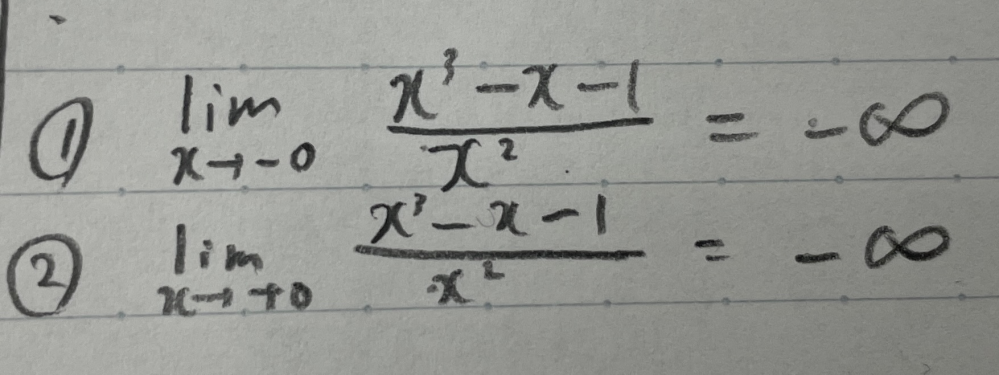 ① lim x→-0 (x³-x-1)/x² = -∞
② lim x→+0 (x³-x-1)/x² = -∞